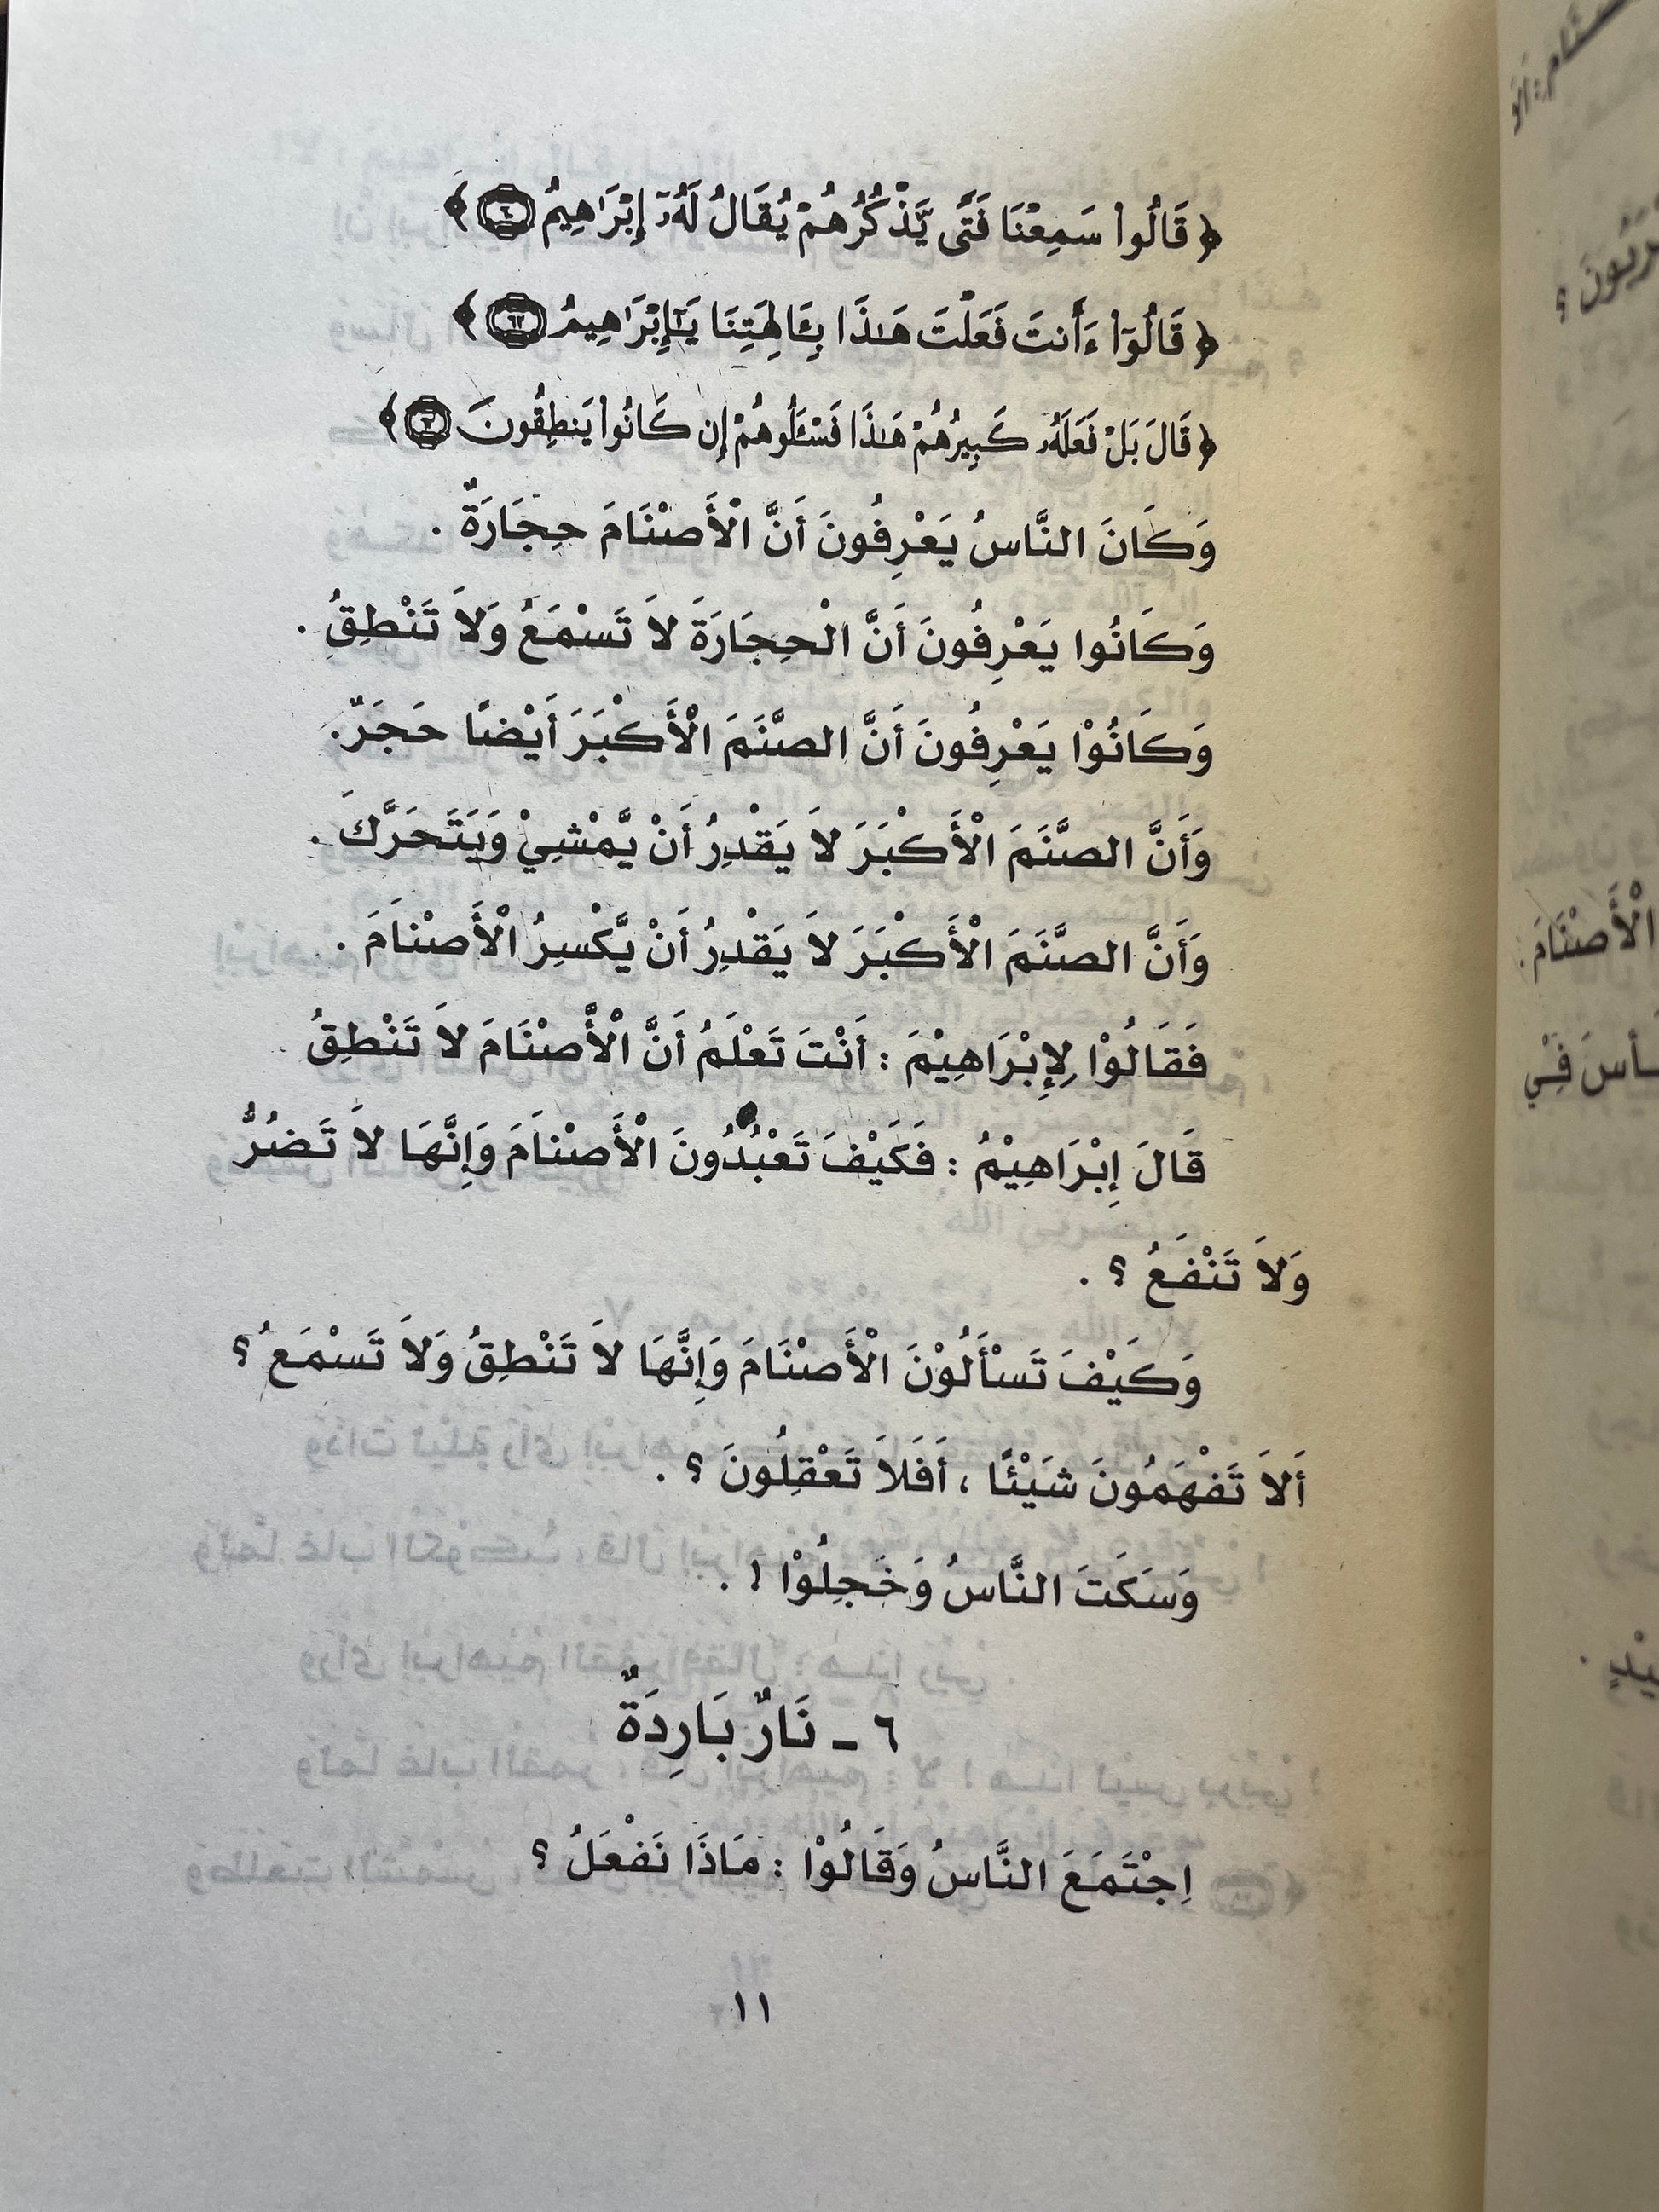 ﴿ قَالُوا۟ سَمِعْنَا فَتًى يَذْكُرُهُمْ يُقَالُ لَهُۥٓ إِبْرَٰهِيمُ ﴾
﴿ قَالُوٓا۟ ءَأَنتَ فَعَلْتَ هَـٰذَا بِـَٔالِهَتِنَا يَـٰٓإِبْرَٰهِيمُ ٦٢ ﴾
﴿ قَالَ بَلْ فَعَلَهُۥ كَبِيرُهُمْ هَـٰذَا فَسْـَٔلُوهُمْ إِن كَانُوا۟ يَنطِقُونَ ﴾
وَكَانَ النَّاسُ يَعْرِفُونَ أَنَّ الْأَصْنَامَ حِجَارَةٌ .
وَكَانُوا يَعْرِفُونَ أَنَّ الْحِجَارَةَ لاَ تَسْمَعُ وَلاَ تَنْطِقُ .
وَكَانُوْا يَعْرِفُونَ أَنَّ الصَّنَمَ الْأَكْبَرَ أَيْضًا حَجَرٌ.
وَأَنَّ الصَّنَمَ الْأَكْبَرَ لاَ يَقْدِرُ أَنْ يَّمْشِيْ وَيَتَحَرَّكَ .
وَأَنَّ الصَّنَمَ الْأَكْبَرَ لاَ يَقْدِرُ أَنْ يَّكْسِرُ الْأَصْنَامَ .
فَقَالُوْا لِإِبْرَاهِيْمَ : أَنْتَ تَعْلَمُ أَنَّ الْأَصْنَامَ لاَ تَنْطِقُ
قَالَ إِبْرَاهِيْمُ : فَكَيْفَ تَعْبُدُونَ الْأَصْنَامَ وَإِنَّهَا لاَ تَضُرُّ
وَلاَ تَنْفَعُ ؟ .
وَكَيْفَ تَسْأَلُوْنَ الْأَصْنَامَ وَإِنَّهَا لاَ تَنْطِقُ وَلاَ تَسْمَعُ ؟
أَلاَ تَفْهَمُونَ شَيْئًا ، أَفَلاَ تَعْقِلُونَ ؟ .
وَسَكَتَ النَّاسُ وَخَجِلُوْا ! .
٦ ـ نَارٌ بَارِدَةٌ
اِجْتَمَعَ النَّاسُ وَقَالُوْا : مَاذَا نَفْعَلُ ؟
١١